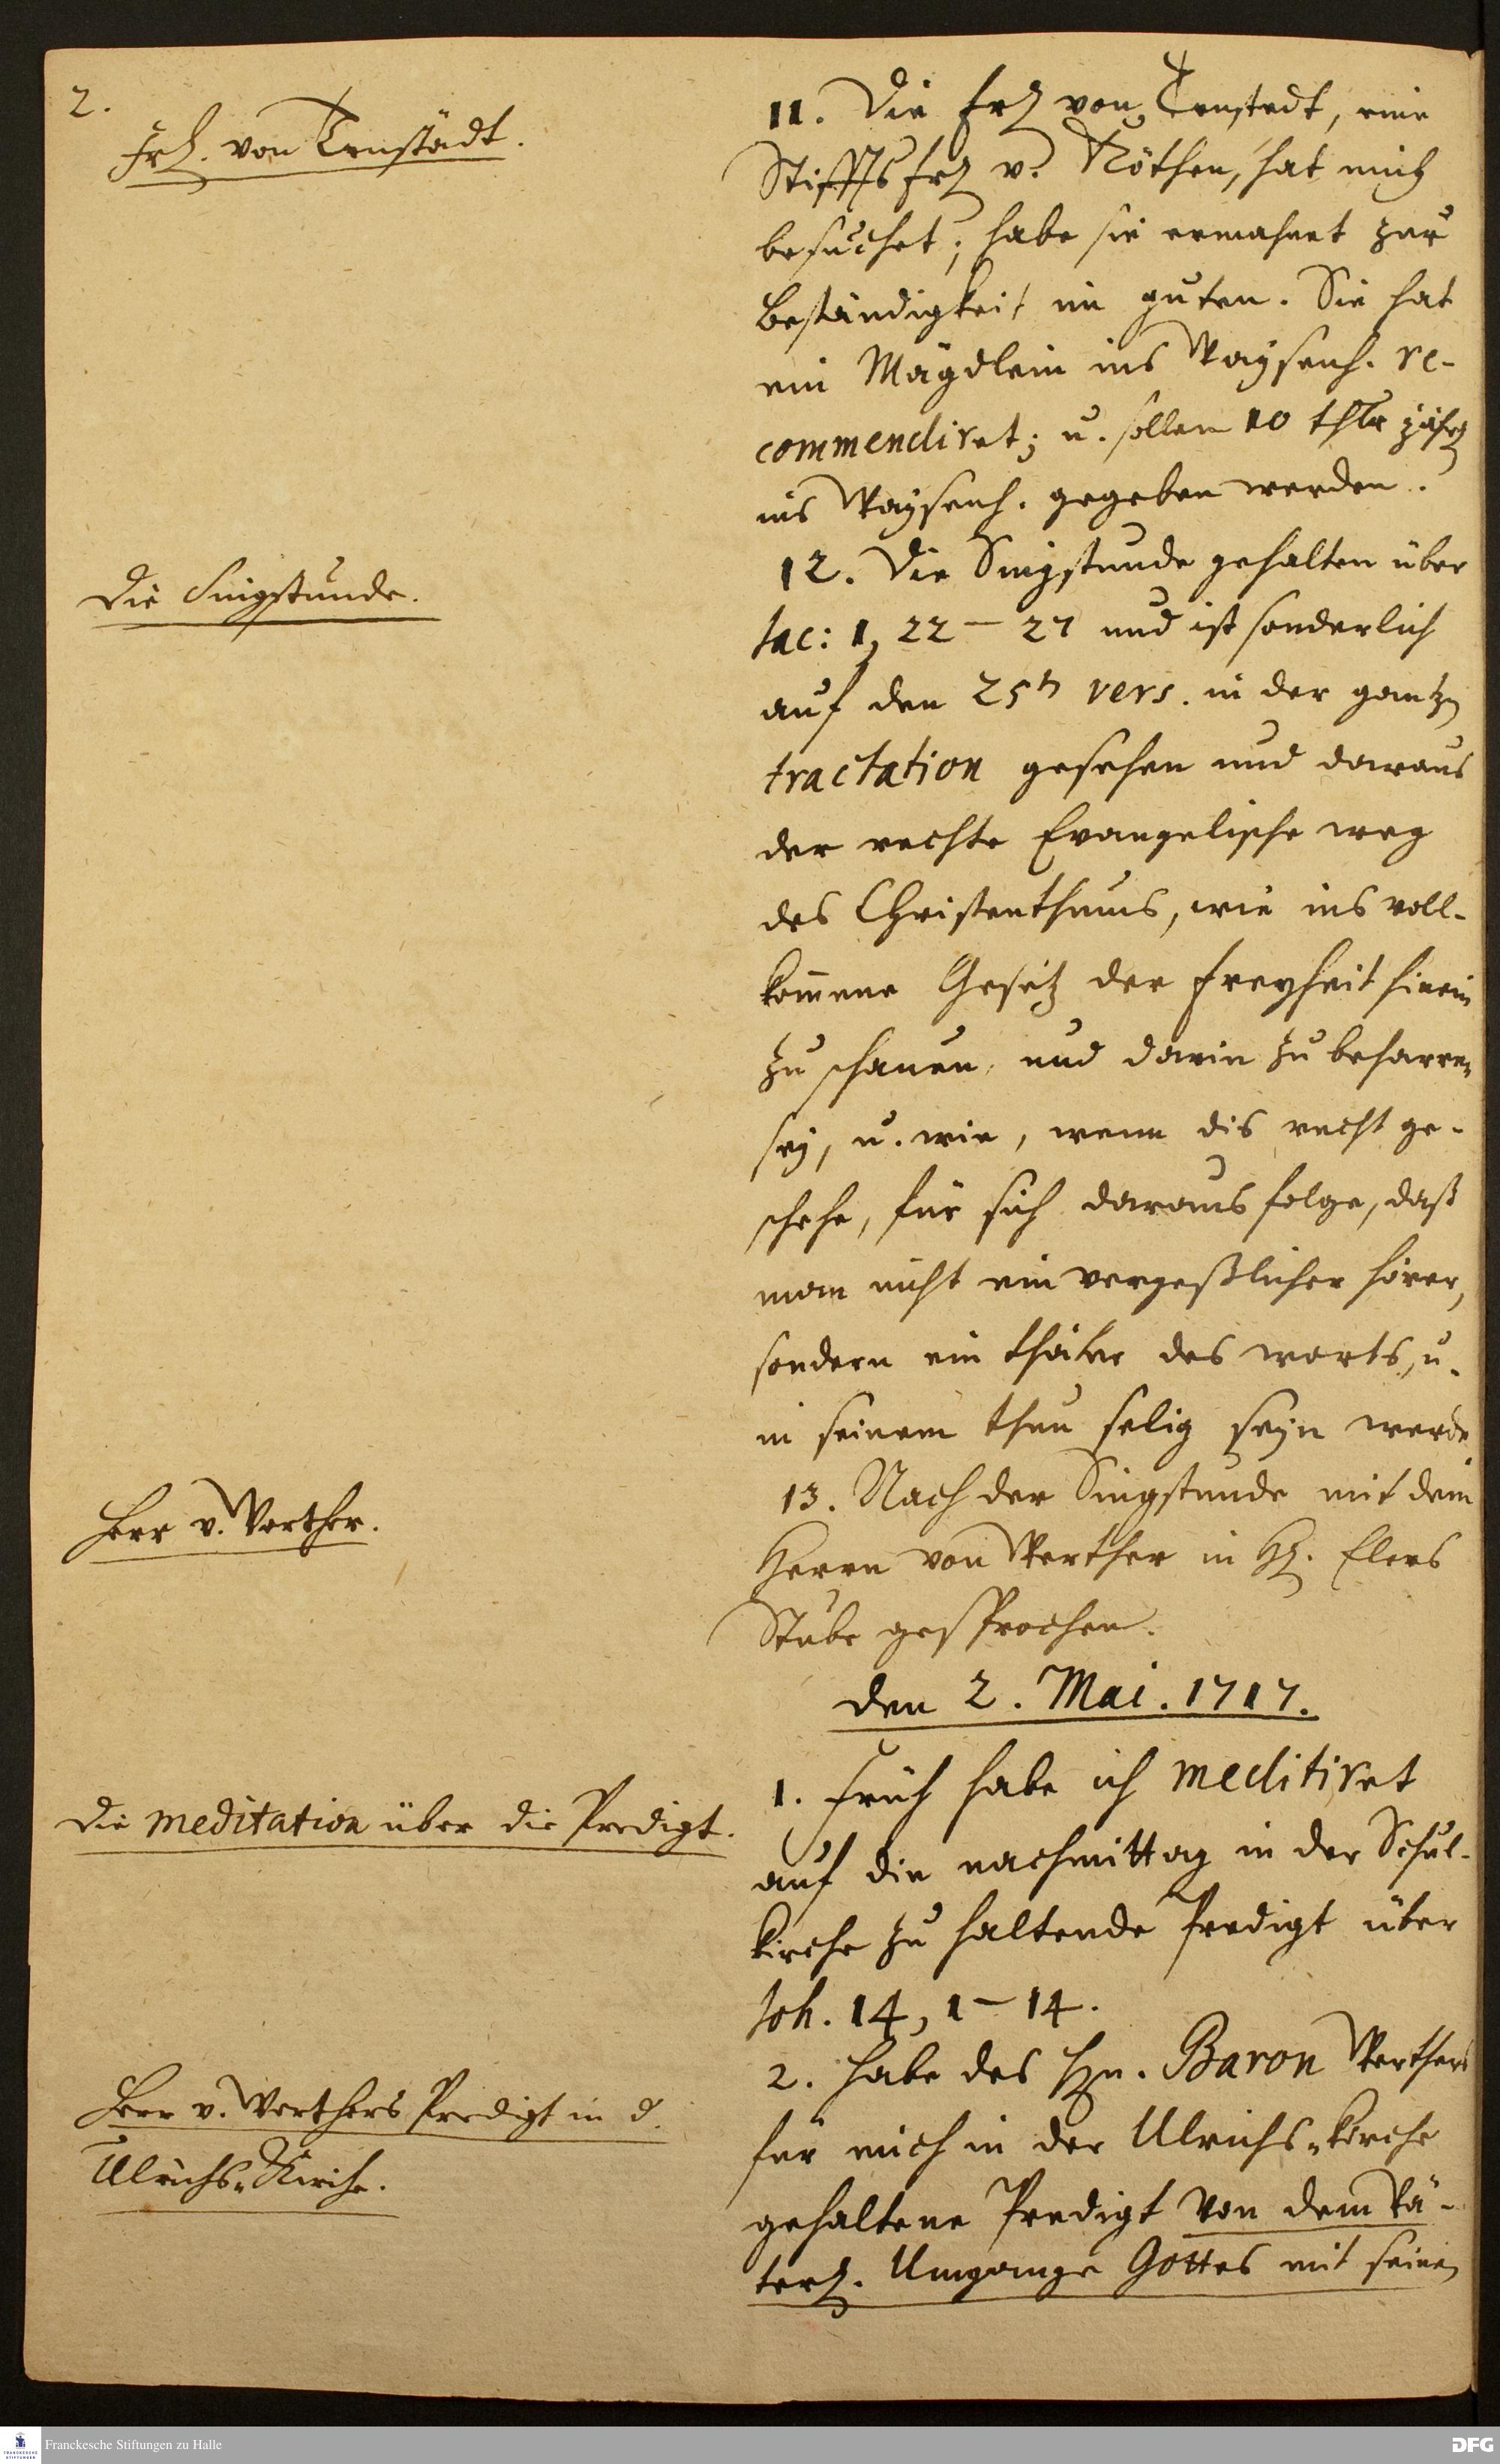 2.
Frl. von Trnstädt.
11. Die Frl von Trnstedt, eine
Stiffts frl v. Köthen, hat mich
besuchet; habe sie ermahnet zur
Beständigkeit im guten. Sie hat
ein Mägdlein ins Waysenh. re-
commendiret; u. sollen 10 thlr jährl
ins Waysenh. gegeben werden.
Die Singstunde.
12. Die Singstunde gehalten über
Jac: 1, 22 – 27 und ist sonderlich
auf den 25tn vers. in der gantzn
tractation gesehen und daraus
der rechte Evangelische weg
des Christenthums, wie ins voll-
komene Gesetz der freyheit hinein
zu schauen, und darin zu beharren
sey, u. wie, wenn dis recht ge-
schehe, für sich daraus folge, daß
man nicht ein vergeßlicher hörer,
sondern ein thäter des worts, u.
in seinem thun selig seyn werde
Herr v. Werther.
13. Nach der Singstunde mit dem
Herrn von Werther in H. Elers
Stube gesprochen.
den 2. Mai. 1717.
Die meditation über die Predigt.
1. Früh habe ich meditiret
auf die nachmittag in der Schul-
kirche zu haltende Predigt über
Joh. 14, 1 – 14.
Herr v. Werthers Predigt in d.
Ulrichs-Kirche.
2. Habe des Hn. Baron Werthers
für mich in der Ulrichs-kirche
gehaltene Predigt von dem Vä-
terl. Umgange Gottes mit seinen
Franckesche Stiftungen zu Halle
DFG